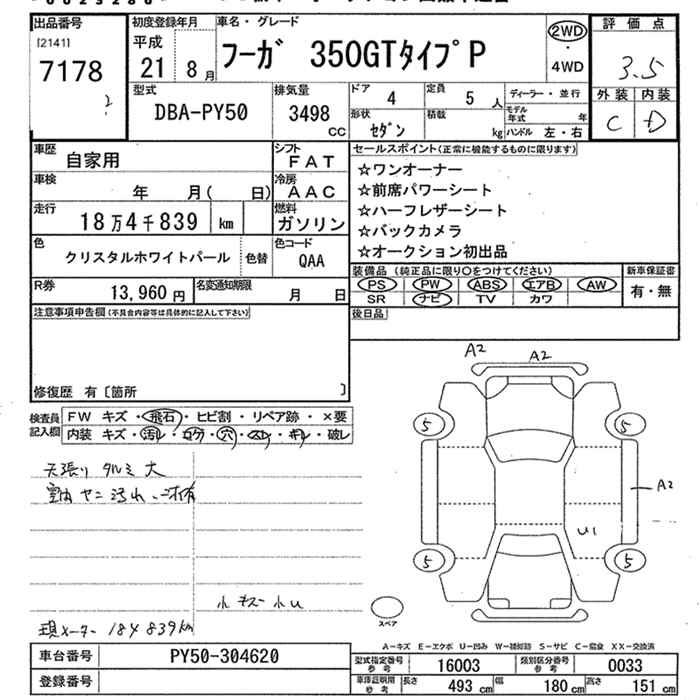 出品番号 初度登録年月 車名・グレード 評価点
[2141] 平成
7178 21 8月 フーガ 350GTタイプP 2WD・4WD 3.5
外装 内装
C D
型式 排気量 ドア 定員 ディーラー・並行
DBA-PY50 3498 cc 4 5人 モデル年式 年
形状 積載 kg ハンドル 左・右
セダン
車歴 自家用 シフト FAT セールスポイント(正常に機能するものに限ります)
☆ワンオーナー
車検 年 月( 日) 冷房 AAC ☆前席パワーシート
走行 18万4千839 km 燃料 ガソリン ☆ハーフレザーシート
☆バックカメラ
色 クリスタルホワイトパール 色替 色コード QAA ☆オークション初出品
装備品(純正品に限り○をつけてください) 新車保証書
R券 13,960円 名変通知期限 月 日 PS PW ABS エアB AW 有・無
SR ナビ TV カワ
注意事項申告欄(不具合内容等は具体的に記入して下さい) 後日品
修復歴 有〔箇所 〕
検査員記入欄 FW キズ・飛石・ヒビ割・リペア跡・×要
内装 キズ・汚レ・コゲ・穴・スレ・キレ・破レ
天張り タルミ 大
室内 ヤニ 汚れ
小キズ 小U
現メーター 184839km
A2 A2
5 5
A2
U1
5 5
スペア
A-キズ E-エクボ U-凹み W-補修跡 S-サビ C-腐食 XX-交換済
車台番号 PY50-304620 型式指定番号 参考 16003 類別区分番号 参考 0033
登録番号 車庫証明用 参考 長さ 493 cm 幅 180 cm 高さ 151 cm